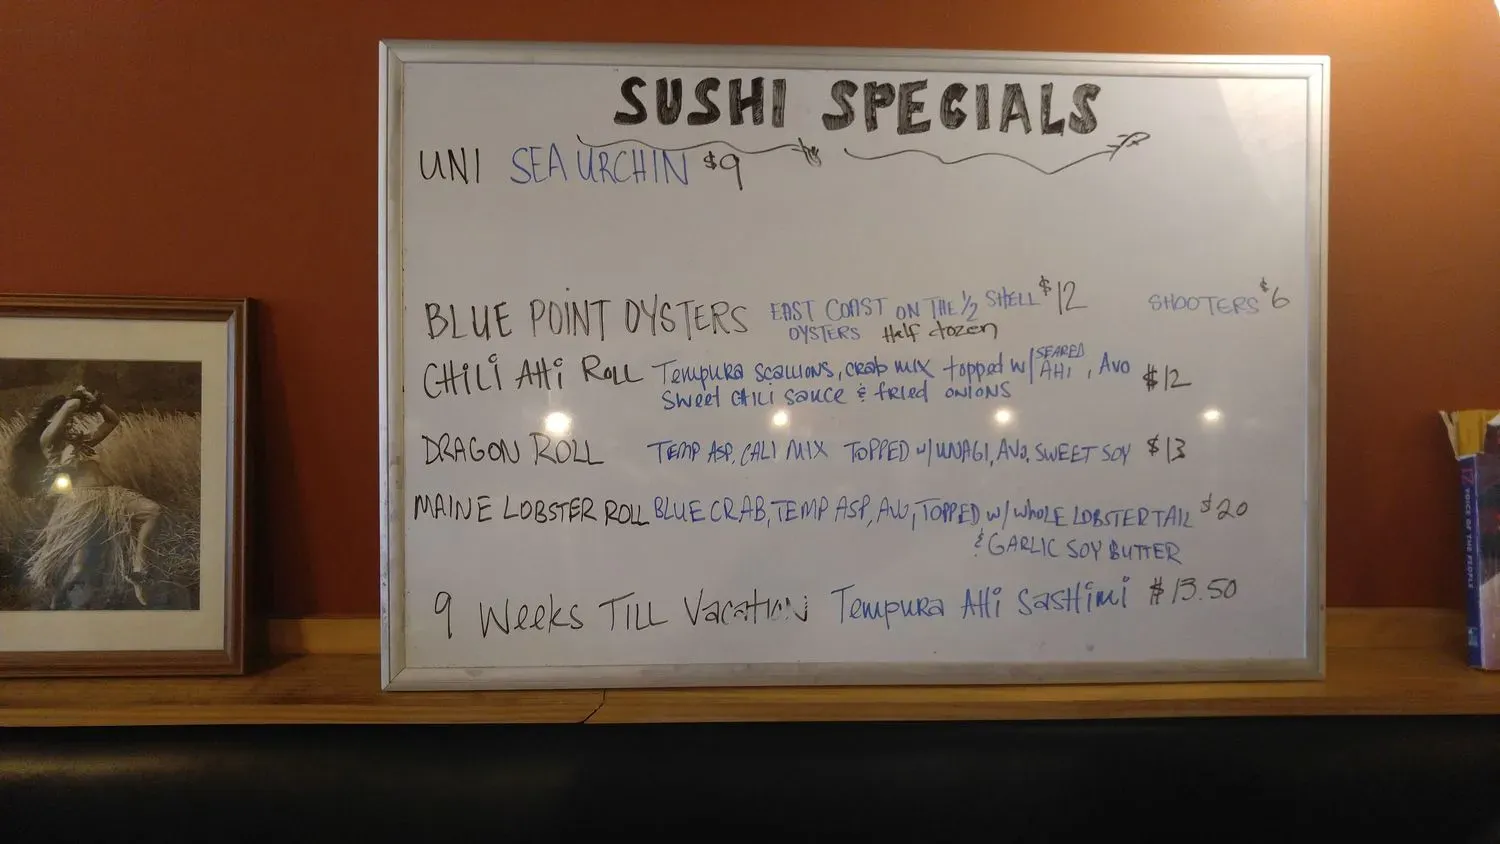 SUSHI SPECIALS
UNI SEA URCHIN $9
BLUE POINT OYSTERS EAST COAST ON THE 1/2 SHELL $12 SHOOTERS $6
OYSTERS Half dozen
CHILI AHI ROLL Tempura scallions, crab mix topped w/ SEARED AHI, Avo $12
Sweet CHILI sauce & fried onions
DRAGON ROLL TEMP ASP, CALI MIX TOPPED w/ UNAGI, AVO, SWEET SOY $13
MAINE LOBSTER ROLL BLUE CRAB, TEMP ASP, AVO, TOPPED w/ WHOLE LOBSTER TAIL $20
& GARLIC SOY BUTTER
9 Weeks TILL Vacation Tempura AHi SasHimi $13.50
VOICE OF THE PEOPLE